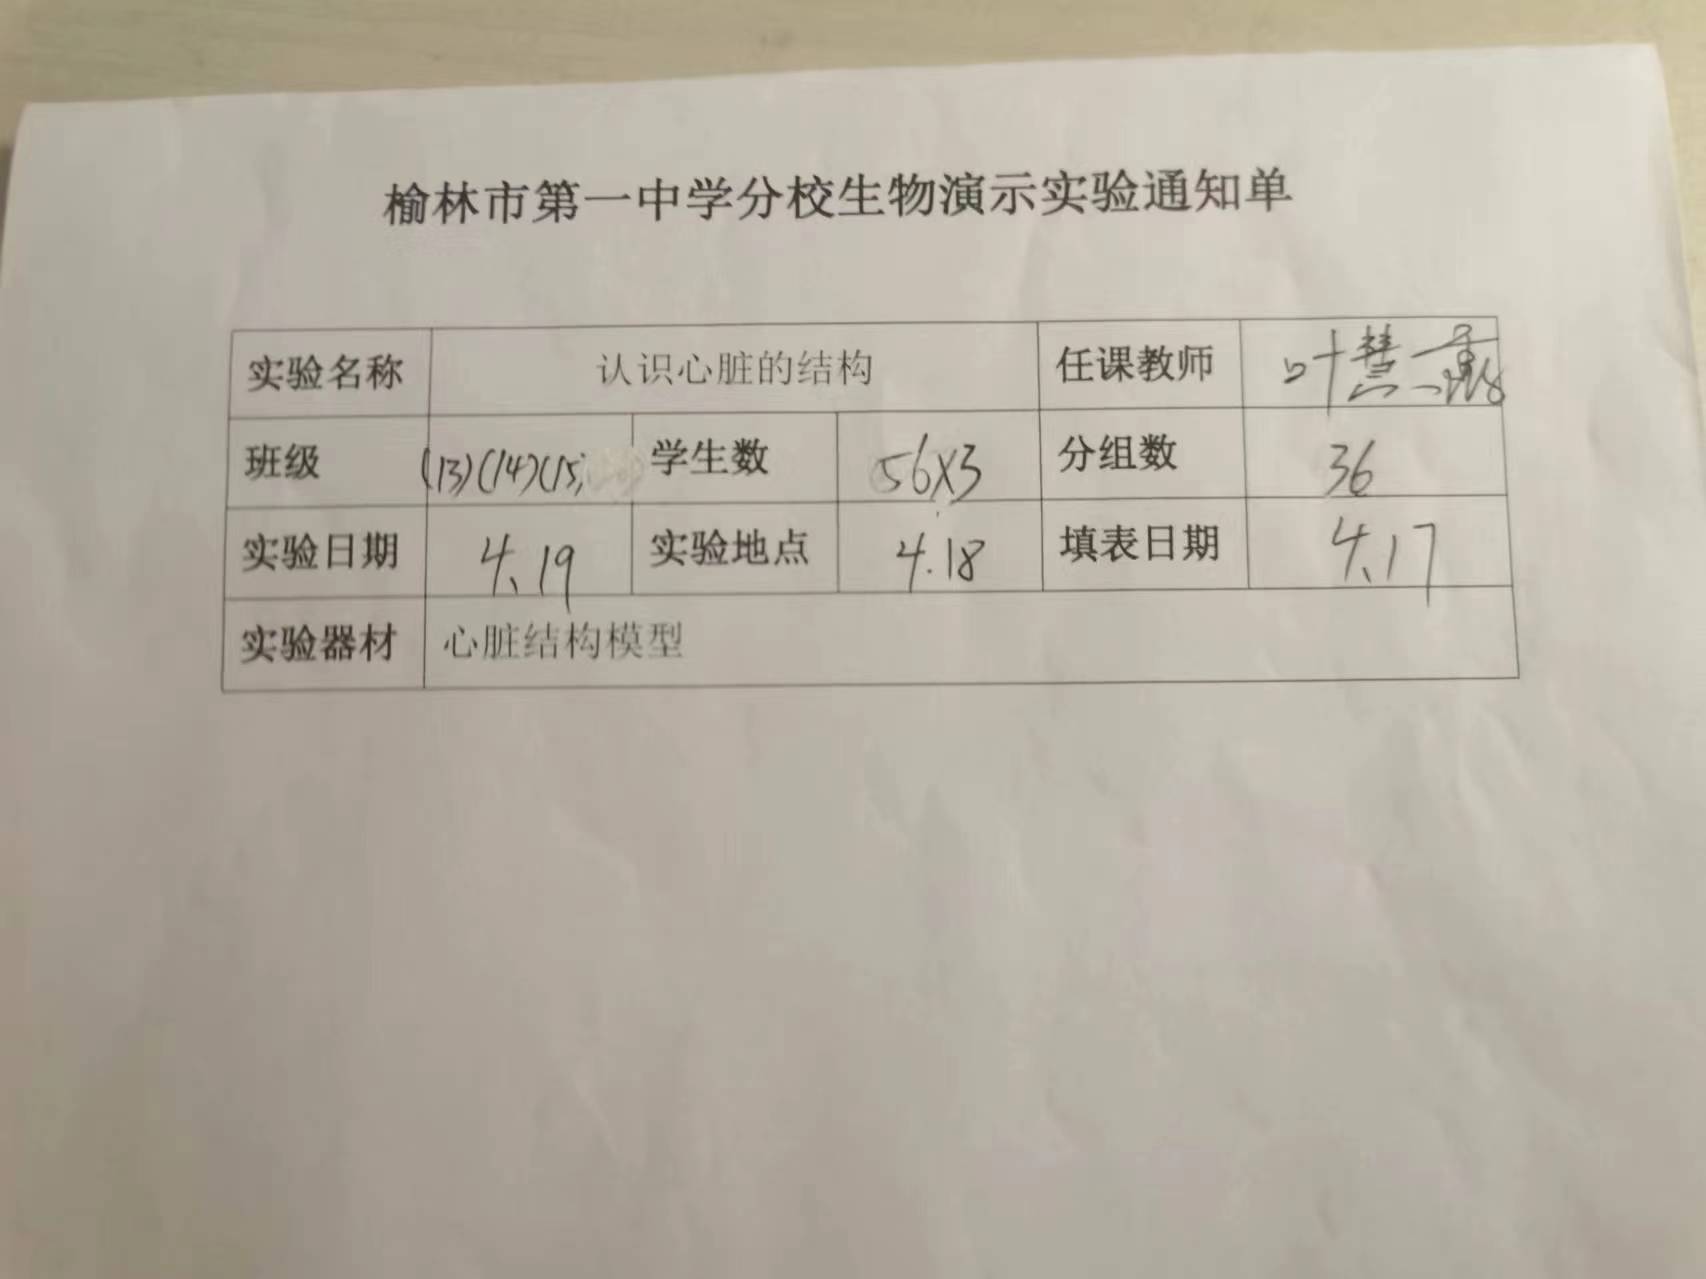 榆林市第一中学分校生物演示实验通知单
实验名称 认识心脏的结构 任课教师 叶慧
班级 (13)(14)(15) 学生数 56×3 分组数 36
实验日期 4.19 实验地点 4.18 填表日期 4.17
实验器材 心脏结构模型